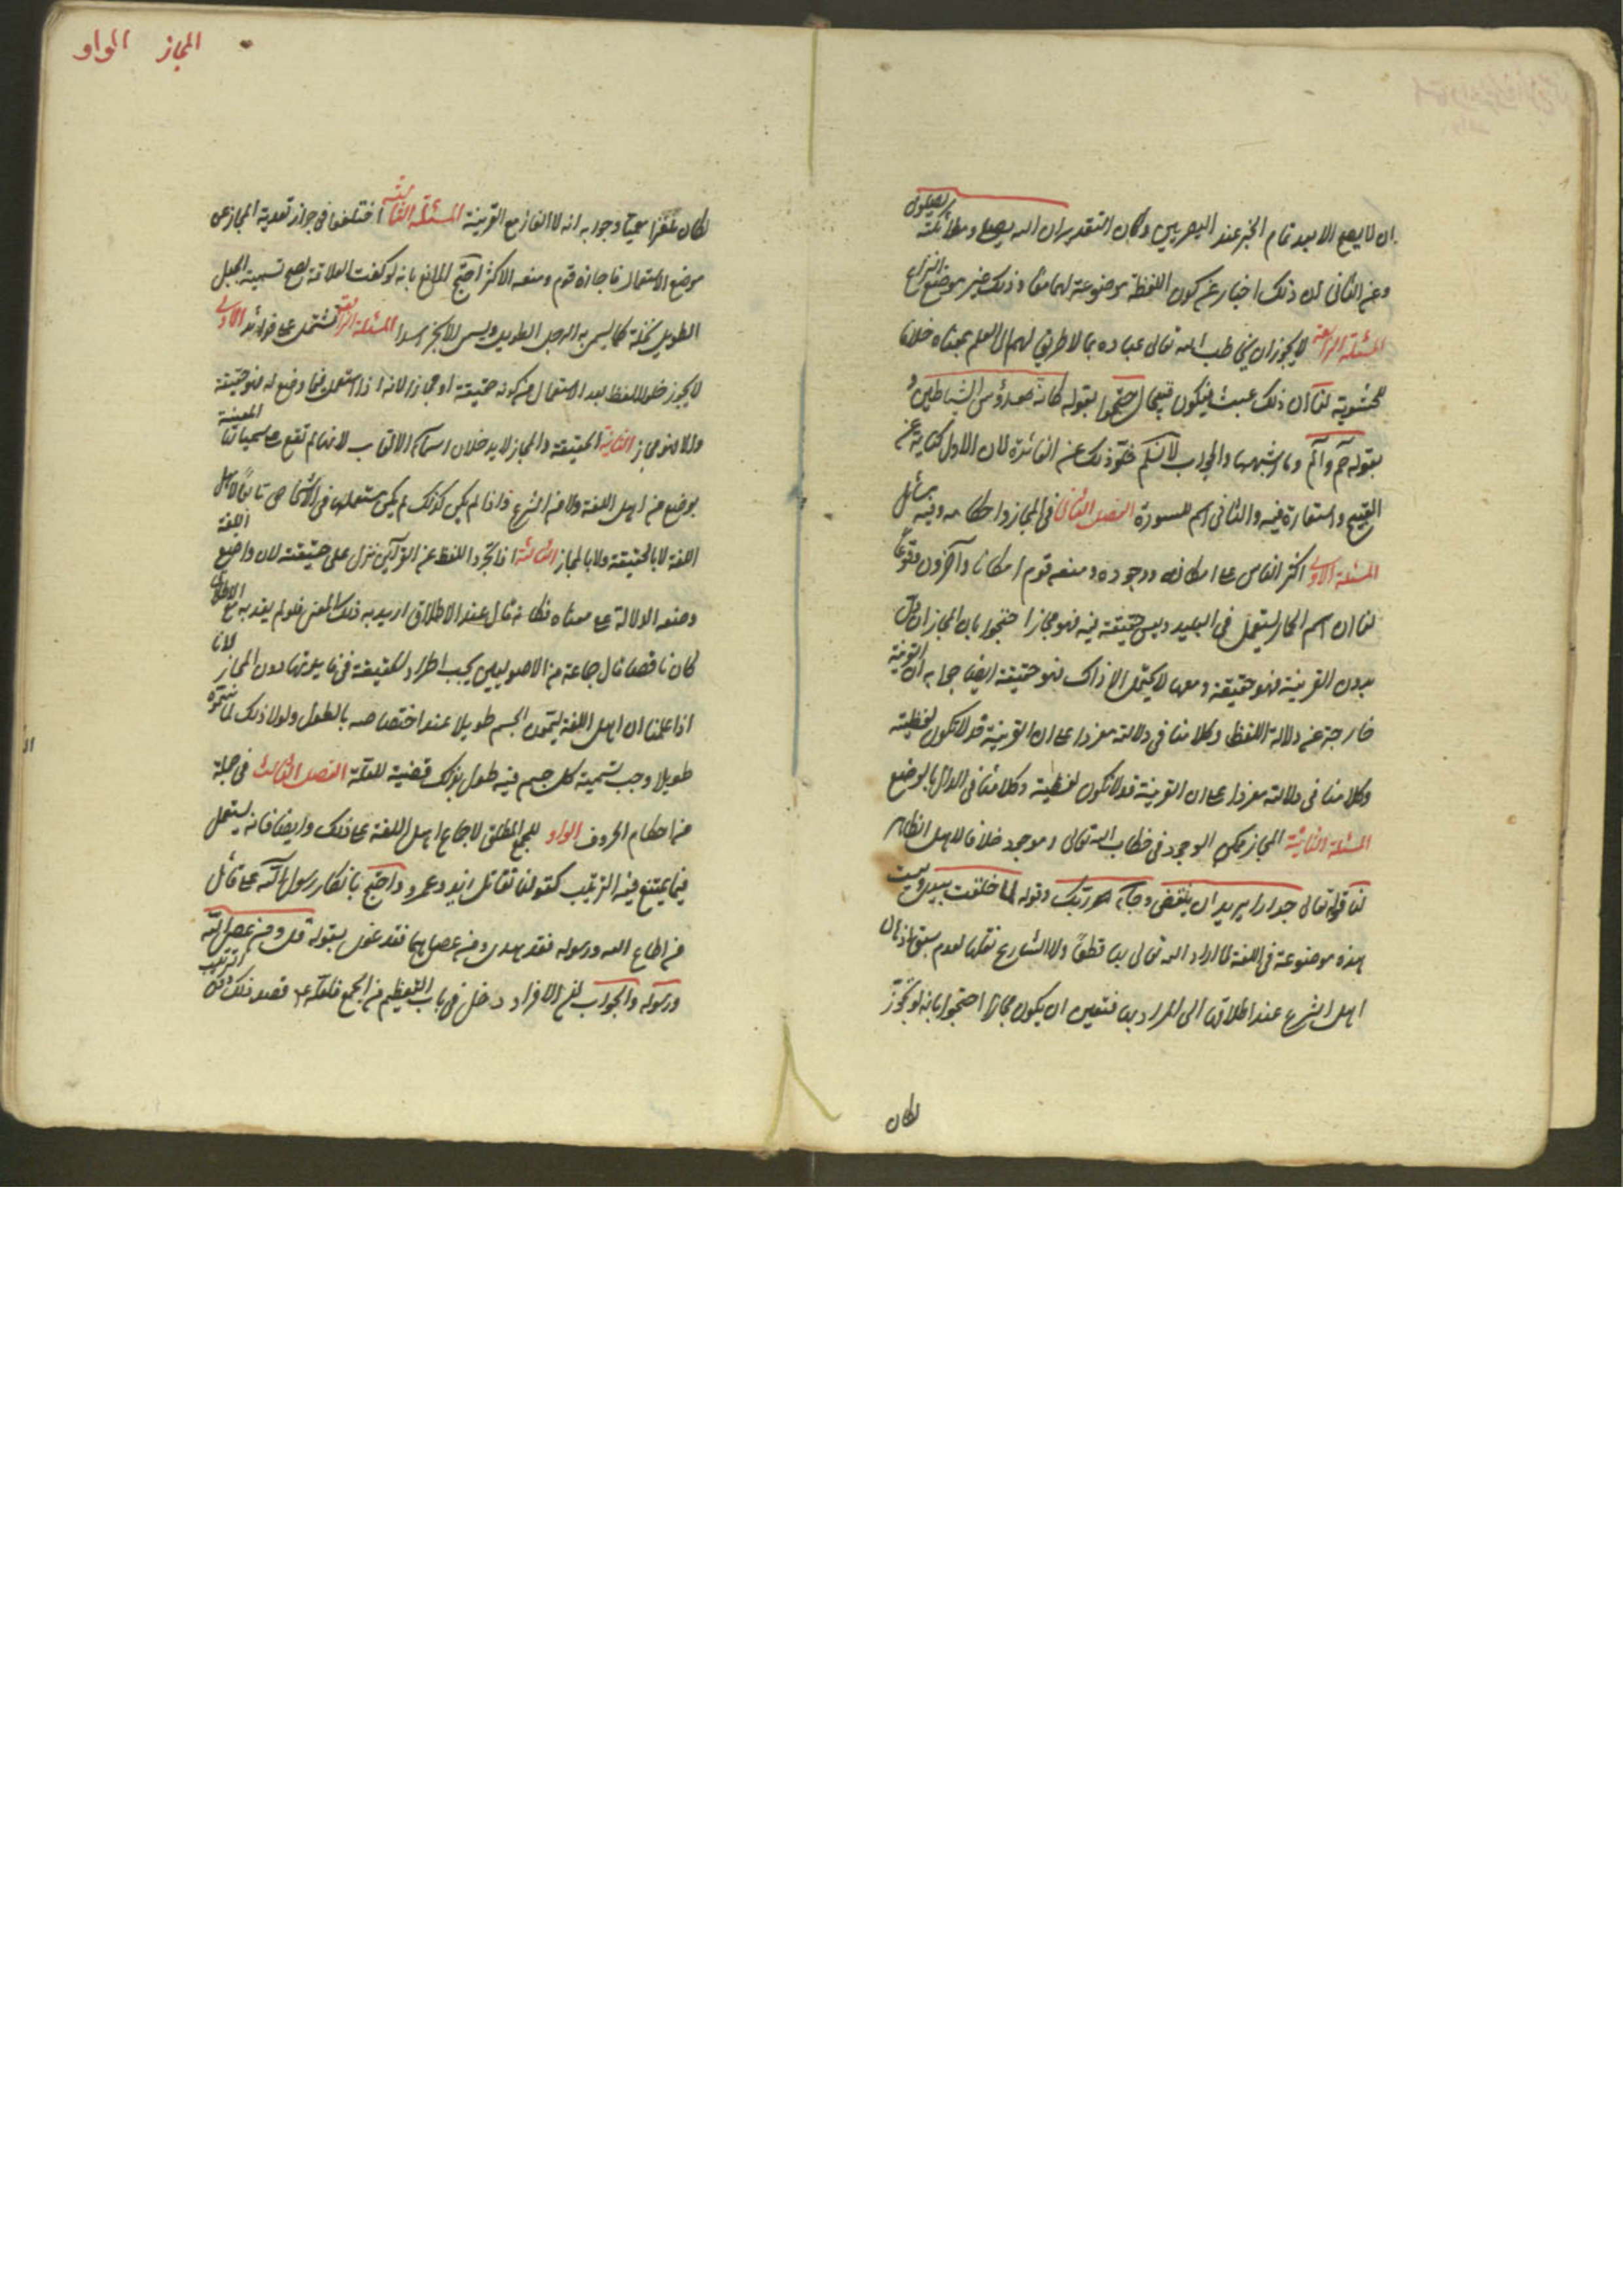 ان لا يصح الا بعد تمام الخبر عند البصريين وكان التقدير ان الله يصلى وملائكته يصلون
وعن الثانى ان ذلك اخبار عن كون اللفظة موضوعة لهما معا وذلك غير موضع النزاع
المسئلة الرابعة لا يجوز ان يخاطب الله تعالى عباده بما لا طريق لهم الى العلم بمعناه خلافا
للحشوية لنا ان ذلك عبث فيكون قبيحا احتجوا بقوله كانه رؤس الشياطين و
بقوله حم والم وما اشبههما والجواب لا نسلم خلو ذلك عن الفائدة لان الاول كناية عن
القبيح واستعارة فيه والثانى اسم للسورة الفصل الثانى فى المجاز واحكامه وفيه مسائل
المسئلة الاولى اكثر الناس على امكانه ووجوده ومنعه قوم امكانا وآخرون وقوعا
لنا ان اسم الحمار يستعمل فى البليد وليس حقيقة فيه فهو مجاز احتجوا بان المجاز ان دل
بدون القرينة فهو حقيقة ومعها لا يحتمل الا ذاك فهو حقيقة ايضا جوابه ان القرينة
خارجة عن دلالة اللفظ وكلامنا فى دلالته مفردا على ان القرينة قد لا تكون لفظية
وكلامنا فى دلالته مفردا على ان القرينة قد لا تكون لفظية وكلامنا فى الدال بالوضع
المسئلة الثانية المجاز ممكن الوجود فى خطاب الله تعالى وموجود خلافا لاهل الظاهر
لنا قوله تعالى جدارا يريد ان ينقض وجآء ربك وقوله لما خلقت بيدى وليست
هذه موضوعة فى اللغة لما اراد الله تعالى بها قطعا ولا الشارع نقلها لعدم سبق اذهان
اهل الشرع عند اطلاقها الى المراد بها فتعين ان يكون مجازا احتجوا بانه لو تجوز
لكان
المجاز الواو
لكان ملغزا معميا وجوابه انه لا الغاز مع القرينة المسئلة الثالثة اختلفوا فى جواز تعدية المجاز عن
موضع الاستعمال فاجازه قوم ومنعه الاكثر احتج المانع بانه لو كفت العلاقة لصح تسمية الجبل
الطويل نخلة كما يسمى به الرجل الطويل وليس الابخر اسدا المسئلة الرابعة تشتمل على فوائد الاولى
لا يجوز خلو اللفظ بعد الاستعمال عن كونه حقيقة او مجازا لانه اذا استعمل فيما وضع له فهو حقيقة
والا فهو مجاز الثانية الحقيقة والمجاز لا يدخلان اسمآء الالقاب لانها لم تقع على مسمياتها المعينة
بوضع من اهل اللغة ولا من الشرع واذا لم يكن كذلك لم يكن مستعملها فى الاشخاص تابعا لاهل
اللغة لا بالحقيقة ولا بالمجاز الثالثة اذا تجرد اللفظ عن القرآئن نزل على حقيقته لان واضع اللغة
وضعه للدلالة على معناه فكانه قال عند الاطلاق اريد به ذلك المعنى فلو لم يفد به مع الاطلاق
كان ناقصا قال جماعة من الاصوليين يجب اطراد الحقيقة فى فايدتها دون المجاز لانا
اذا علمنا ان اهل اللغة يسمون الجسم طويلا عند اختصاصه بالطول ولولا ذلك لما سموه
طويلا وجب تسمية كل جسم فيه طول بذلك قضية للعلة الفصل الثالث فى جملة
من احكام الحروف الواو للجمع المطلق لاجماع اهل اللغة على ذلك وايضا فانه يستعمل
فيما يمتنع فيه الترتيب كقولنا تقاتل زيد وعمرو واحتج بانكار رسول الله على قائل
من اطاع الله ورسوله فقد هدى ومن عصاهما فقد غوى بقوله قل ومن عصى الله
ورسوله والجواب لنا الافراد ادخل فى باب التعظيم من الجمع فلعله قصد ذلك دون الترتيب